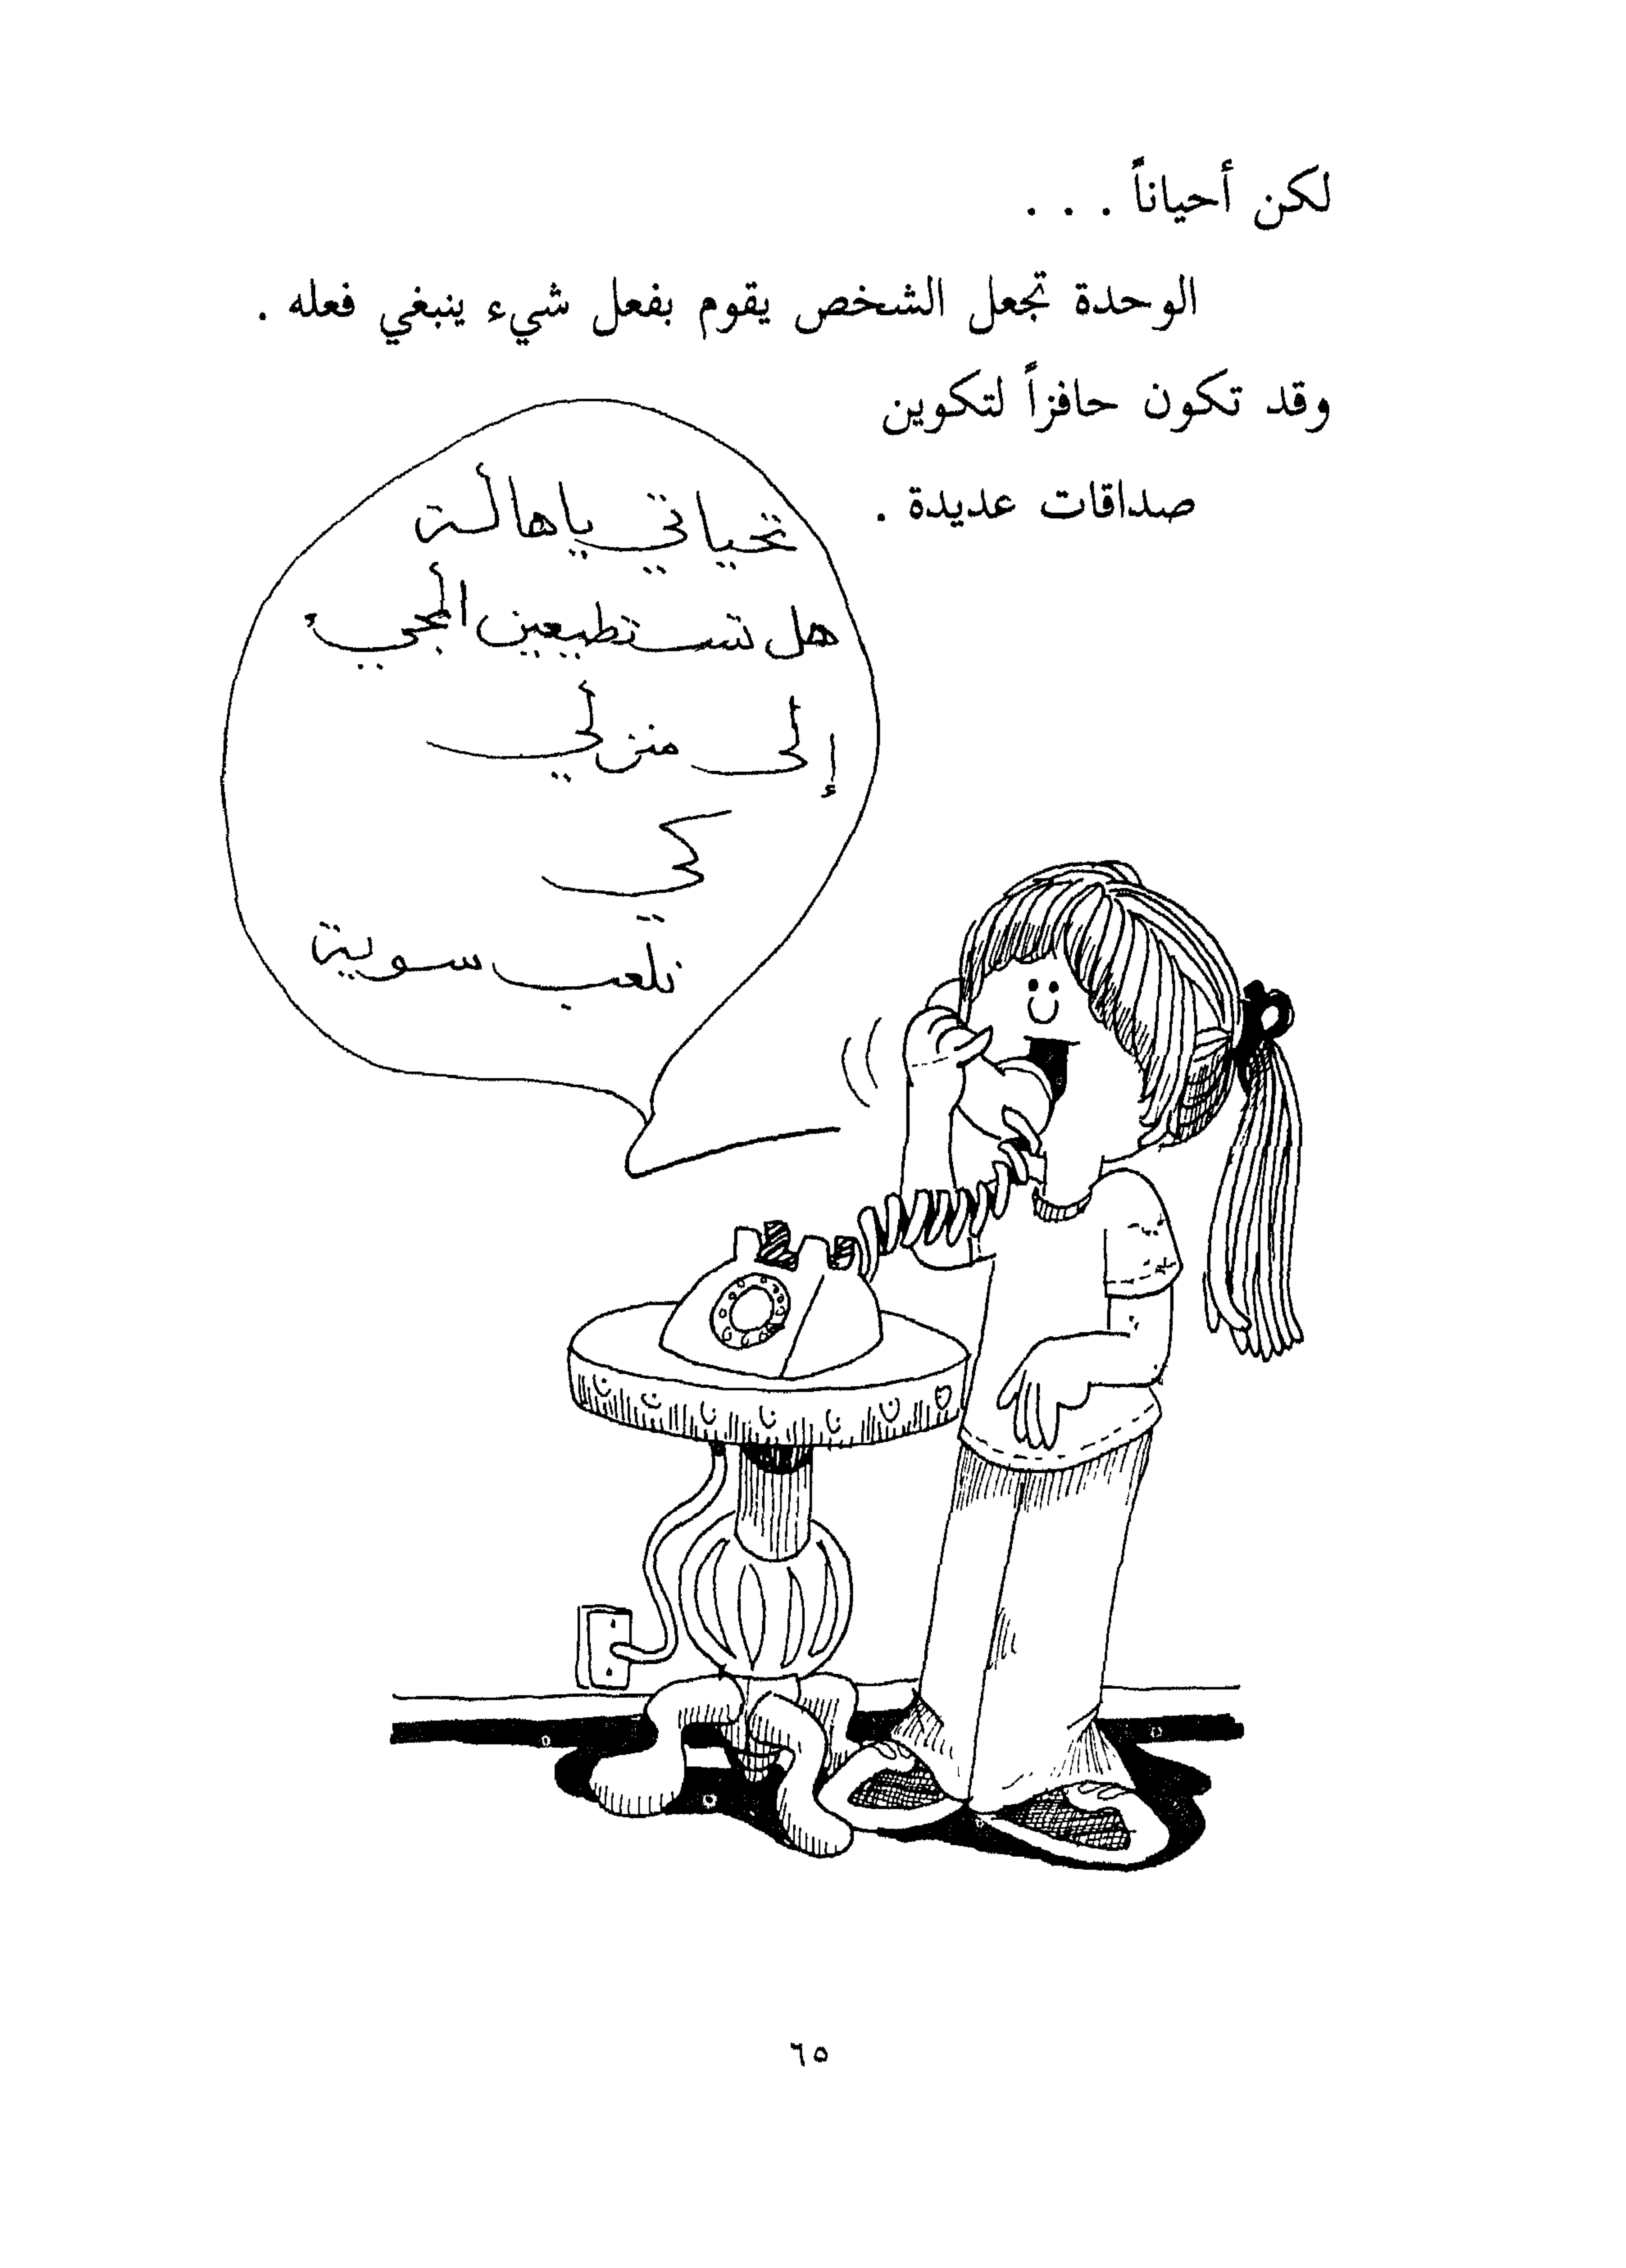 لكن أحياناً . . .
الوحدة تجعل الشخص يقوم بفعل شيء ينبغي فعله .
وقد تكون حافزاً لتكوين
صداقات عديدة .
تحياتي يا هالة
هل تستطيعين المجيء
إلى منزلي
كي
نلعب سوية
٦٥